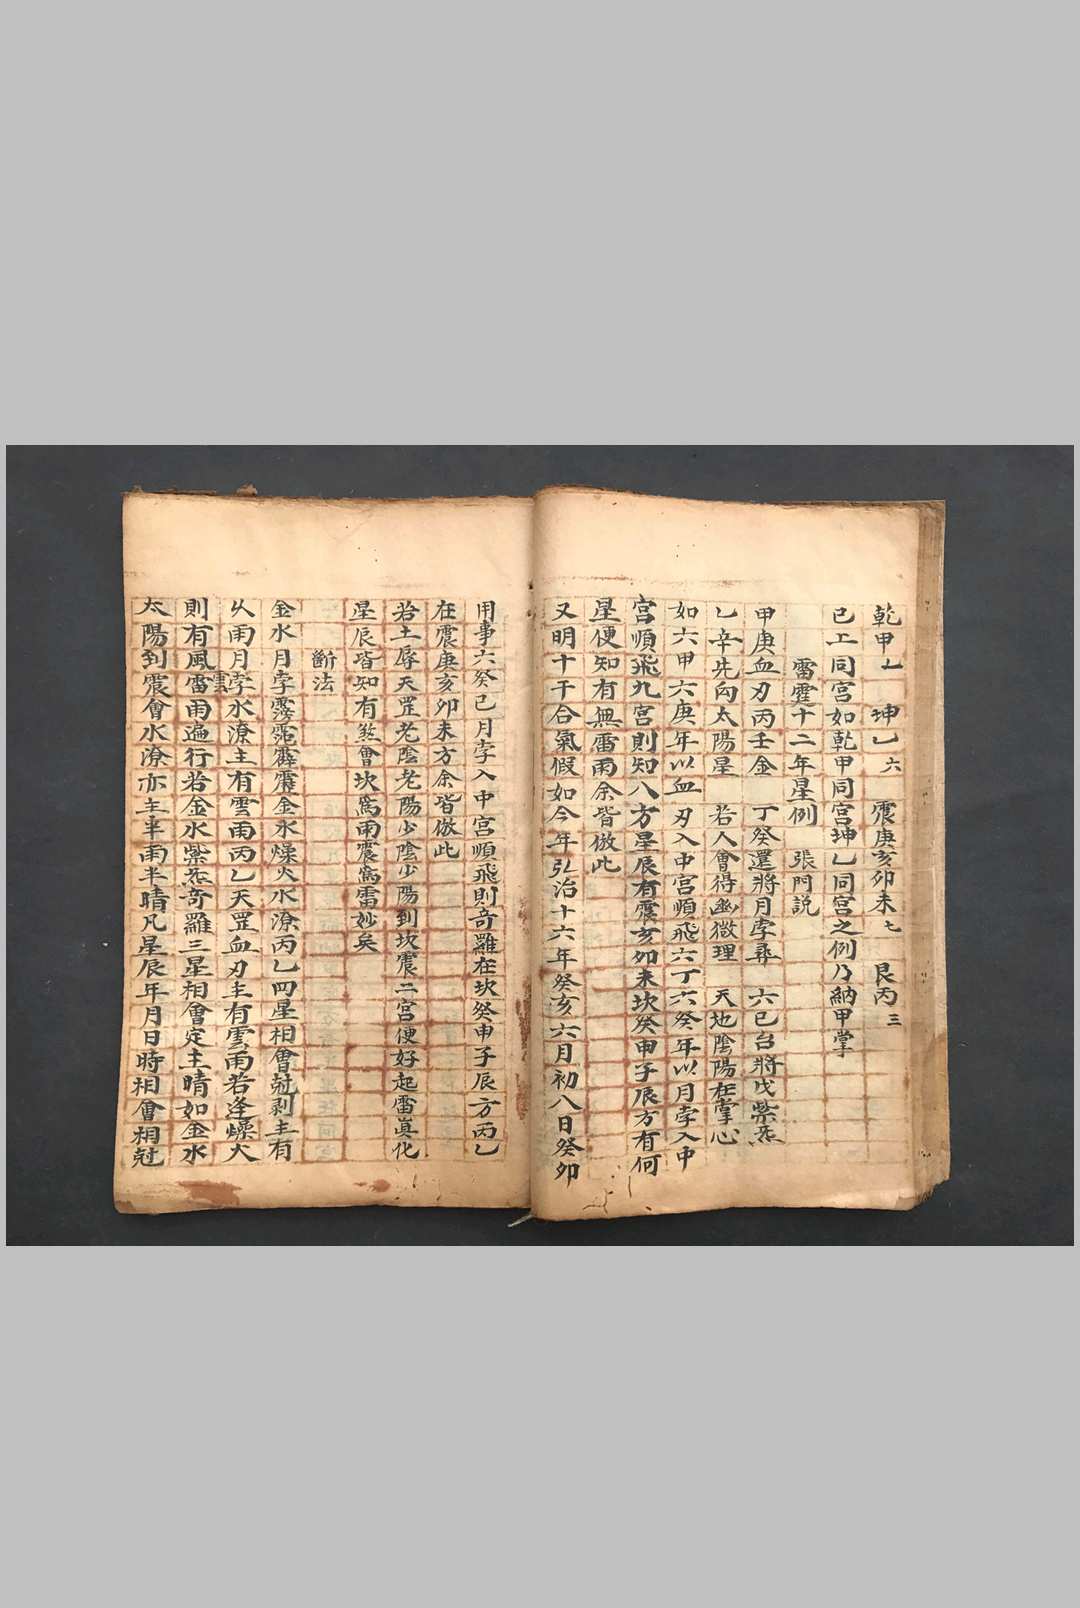 乾甲乚　坤乚六　震庚亥卯未七　艮丙三
已上同宮如乾甲同宮坤乚同宮之例乃納甲掌
雷霆十二年星例　張門説
甲庚血刃丙壬金　丁癸還將月孛尋　六巳台將戊紫炁
乚辛先向太陽星　若人會得幽微理　天地陰陽在掌心
如六甲六庚年以血刃入中宮順飛六丁六癸年以月孛入中
宮順飛九宮則知八方星辰有震亥卯未坎癸申子辰方有何
星便知有無雷雨余皆倣此
又明十干合氣假如今年弘治十六年癸亥六月初八日癸卯
用事六癸巳月孛入中宮順飛則奇羅在坎癸申子辰方丙乚
在震庚亥卯未方余皆倣此
若土辱天罡老陰老陽少陰少陽到坎震二宮便好起雷眞化
星辰皆知有煞會坎窩雨震窩雷妙矣
斷法
金水月孛霶霈霹靂金水燥火水潦丙乚四星相會尅剥主有
火雨月孛水潦主有雲雨丙乚天罡血刃主有雲雨若逢燥火
則有風雷雲雨遍行若金水紫炁奇羅三星相會定主晴如金水
太陽到震會水潦亦主半雨半晴凡星辰年月日時相會相尅